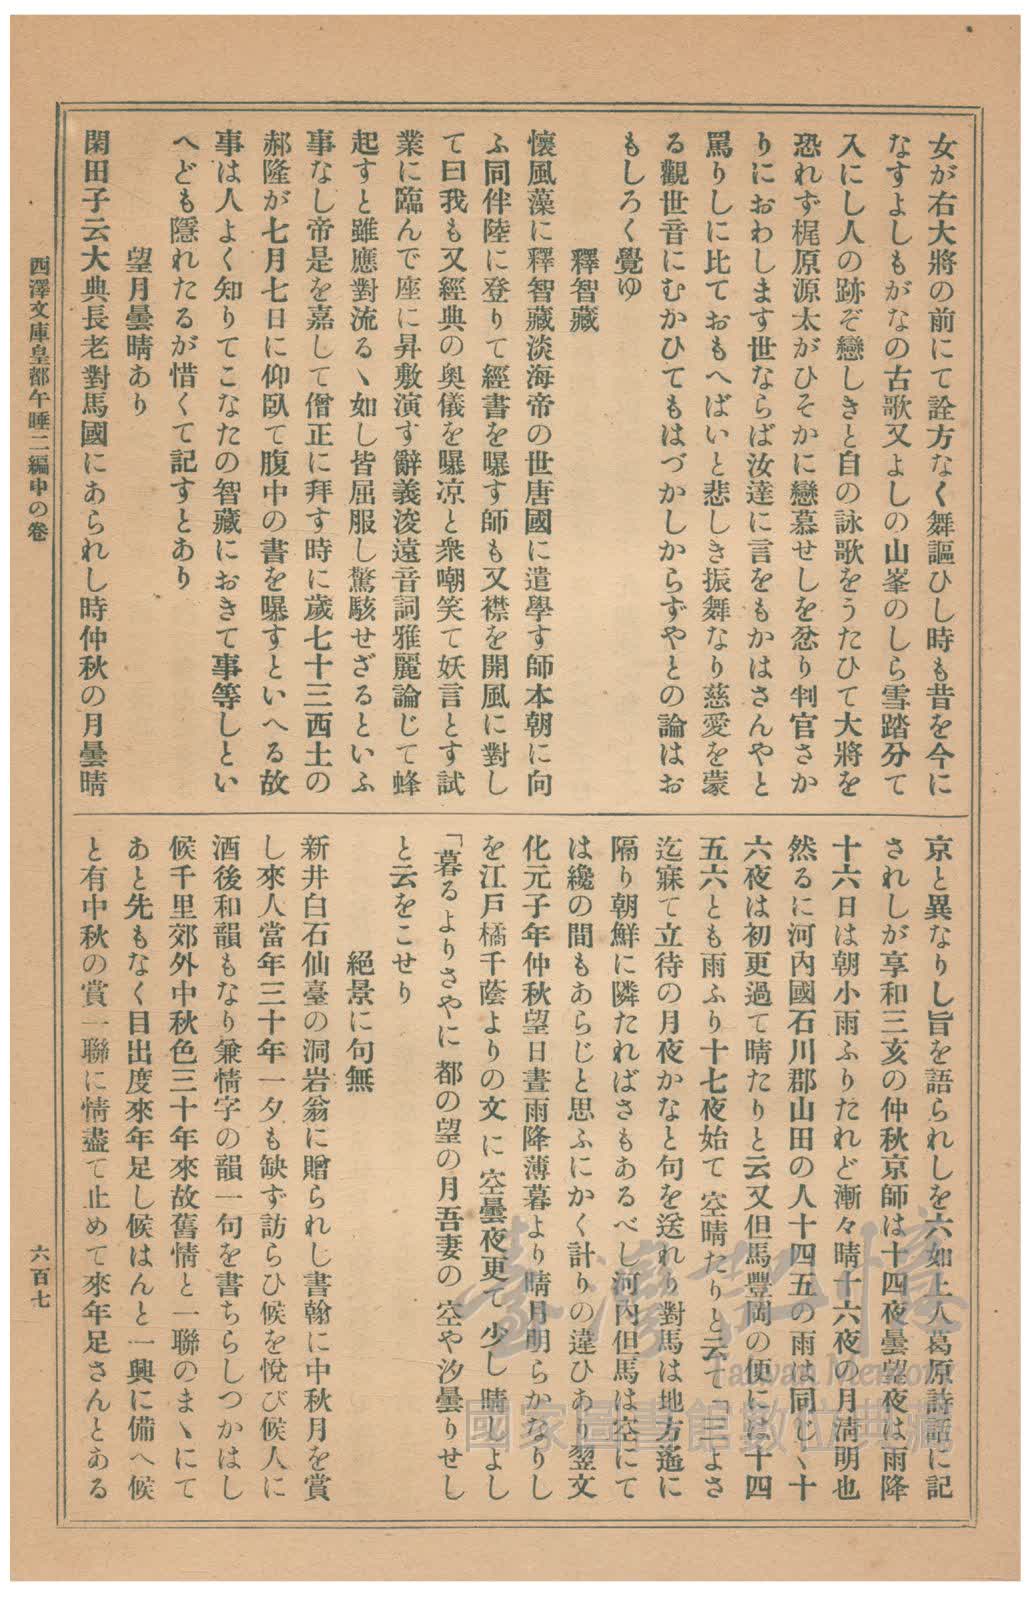 女が右大將の前にて詮方なく舞謳ひし時も昔を今に
なすよしもがなの古歌又よしの山峯のしら雪踏分て
入にし人の跡ぞ戀しきと自の詠歌をうたひて大將を
恐れず梶原源太がひそかに戀慕せしを忿り判官さか
りにおわします世ならば汝達に言をもかはさんやと
罵りしに比ておもへばいと悲しき振舞なり慈愛を蒙
る觀世音にむかひてもはづかしからずやとの論はお
もしろく覺ゆ
釋智藏
懷風藻に釋智藏淡海帝の世唐國に遣學す師本朝に向
ふ同伴陸に登りて經書を曝す師も又襟を開風に對し
て曰我も又經典の奥儀を曝凉と衆嘲笑て妖言とす試
業に臨んで座に昇敷演す辭義浚遠音詞雅麗論じて蜂
起すと雖應對流るヽ如し皆屈服し驚駭せざるといふ
事なし帝是を嘉して僧正に拜す時に歲七十三西土の
郝隆が七月七日に仰臥て腹中の書を曝すといへる故
事は人よく知りてこなたの智藏におきて事等しとい
へども隱れたるが惜くて記すとあり
望月曇晴あり
閑田子云大典長老對馬國にあられし時仲秋の月曇晴
京と異なりし旨を語られしを六如上人葛原詩話に記
されしが享和三亥の仲秋京師は十四夜曇望夜は雨降
十六日は朝小雨ふりたれど漸々晴十六夜の月淸明也
然るに河内國石川郡山田の人十四五の雨は同じヽ十
六夜は初更過て晴たりと云又但馬豐岡の便には十四
五六とも雨ふり十七夜始て空晴たりと云て「三よさ
迄寐て立待の月夜かなと句を送れり對馬は地方遙に
隔り朝鮮に隣たればさもあるべし河内但馬は空にて
は纔の間もあらじと思ふにかく計りの違ひあり翌文
化元子年仲秋望日晝雨降薄暮より晴月明らかなりし
を江戸橘千蔭よりの文に空曇夜更て少し晴しよし
「暮るよりさやに都の望の月吾妻の空や汐曇りせし
と云をこせり
絕景に句無
新井白石仙臺の洞岩翁に贈られし書翰に中秋月を賞
し來人當年三十年一夕も缺ず訪らひ候を悅び候人に
酒後和韻もなり兼情字の韻一句を書ちらしつかはし
候千里郊外中秋色三十年來故舊情と一聯のまヽにて
あと先もなく目出度來年足し候はんと一興に備へ候
と有中秋の賞一聯に情盡て止めて來年足さんとある
西澤文庫皇都午睡二編中の卷
六百七
臺灣記憶
Taiwan Memory
國家圖書館數位典藏